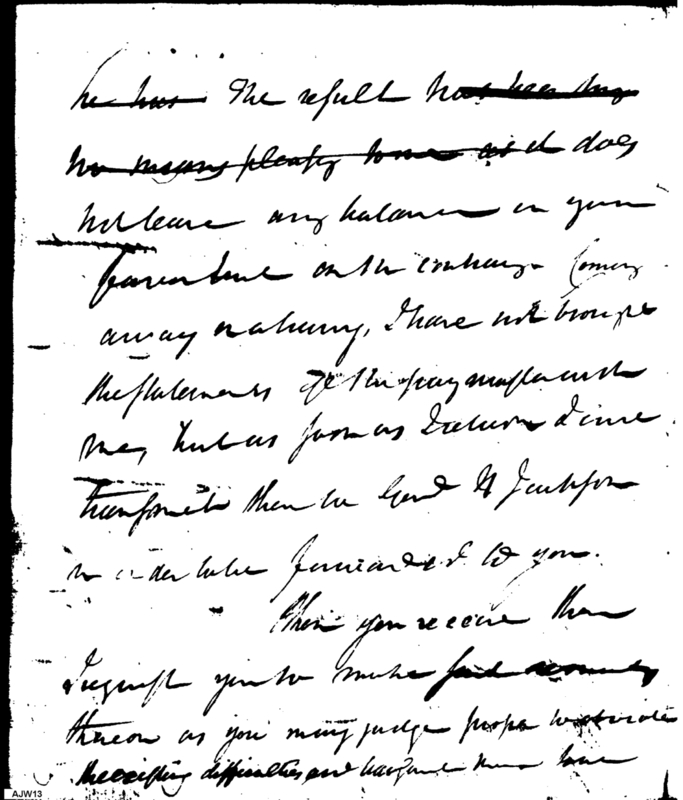 he has The result has been by
no means pleasing to me as it does
not leave any balance in your
favor but on the contrary. Coming
away in a hurry, I have not brought
the statements of the paymaster with
me, but as soon as I return I will
transmit them to Genl H Jackson
in order to be forwarded to you.
When you receive them
I request you to make such
thereon as you may judge proper to obviate
the existing difficulties and
AJW13